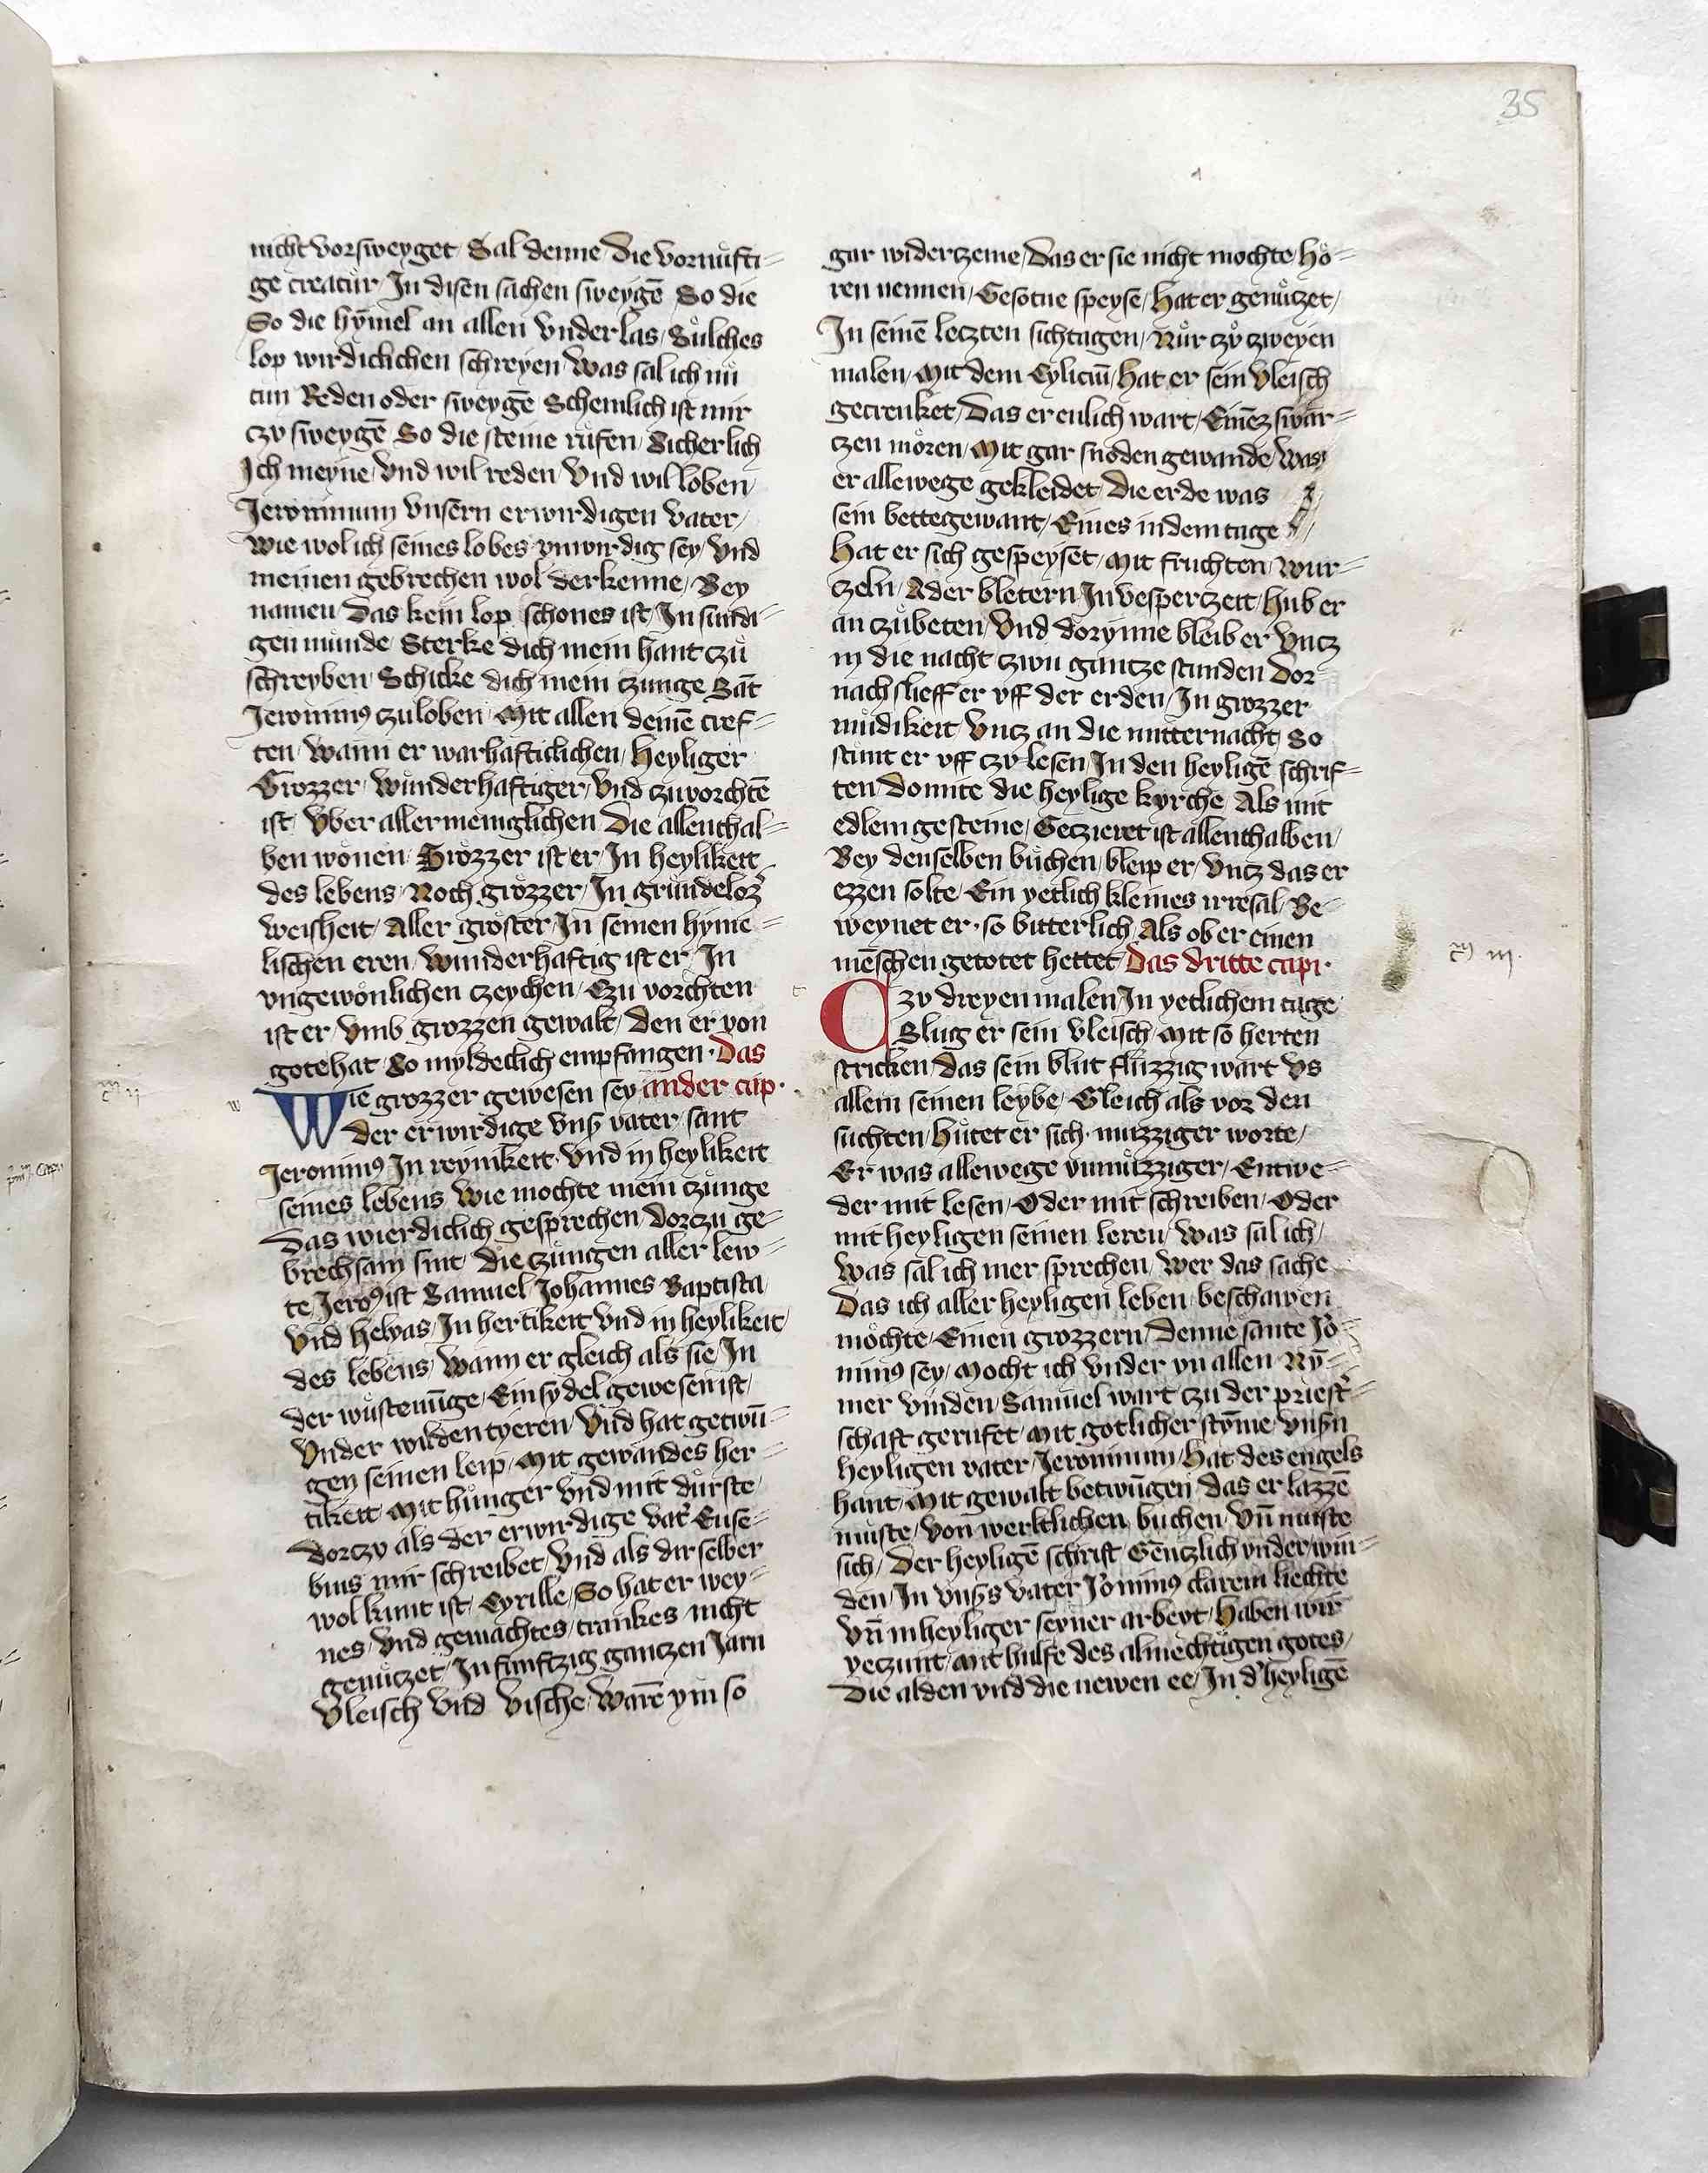 35
nicht vorsweyget Sal denne die vornu̇fti=
ge creatu̇r In disen sachen sweygē So die
So die hȳmel an allen vnderlas Su̇lches
lop wirdiclichen schreyen was sal ich nu̇
tun Reden oder sweygē Schemlich ist mir
czv sweygē So die steine ru̇fen Sicherlich
Ich meyne vnd wil reden vnd wil loben
Jeronimum vnsern erwirdigen vater
wie wol ich seines lobes vnwirdig sey vnd
meinen gebrechen wol derkenne Bey
namen das kein lop schones ist In sundi=
gen munde Sterke dich mein hant czu̇
schreyben Schicke dich mein czunge Sāt
Jeronimꝰ czu loben Mit allen deinē cref=
ten wann er warhafticlichen Heyliger
Grozzer wunderhaftiger vnd czuvorchtē
ist vber allermeniglichen die allenthal=
ben wonen Grözzer ist er In heylikeit
des lebens Noch grözzer In gru̇ndeloz̉
weisheit Aller gröster In seinen hyme=
lischen eren wunderhaftig ist er In
vngewönlichen czeychen Czu vorchten
ist er vmb grozzen gewalt den er von
gote hat So myldeclich empfangen · Das
Wie grozzer gewesen sey ander cap ·
der erwirdige vnsꝰ vater sant
Jeronimꝰ In reynikeit vnd in heylikeit
seines lebens wie mochte mein czunge
das wierdiclich gesprechen dorczu ge=
brechsam sint die czungen aller lew=
te Jeroꝰ ist Samuel Johannes Baptista
vnd helyas In hertikeit vnd in heylikeit
des lebens wann er gleich als sie In
der wu̇stenūge Einsydel gewesen ist
vnder wilden tyeren vnd hat getwū=
gen seinen leip Mit gewandes her=
tikeit Mit hu̇nger vnd mit du̇rste
dorczv als der erwirdige vat̉ Euse=
bius mir schreibet vnd als dir selber
wol kunt ist Cyrille So hat er wey=
nes vnd gemachtes trankes nicht
genu̇tzet In funftzig gantzen Jarn
vleisch vnd vische warē ym so
gar widerzeme das er sie nicht mochte hö=
ren nennen Gesotne speyse hat er genu̇tzet
In seinē letzten sichtagen Nu̇r czv̇ zweyen
malen Mit dem Cyliciū hat er sein vleisch
getrenket das er enlich wart Einēz swar=
czen mören Mit gar snöden gewande was
er allewege gekleidet die erde was
sein bettegewant Eines in dem tage
hat er sich gespeyset Mit fruchten wur=
czeln Ader bletern In vesperzeit hub er
an czu̇ beten vnd dorynne bleib er vncz
in die nacht zwu gantze stunden dor=
nach slieff er vff der erden In grozzer
mudikeit vncz an die mitternacht So
stunt er vff czv lesen In den heyligē schrif=
ten domite die heylige kyrche Als mit
edlem gesteine Geczieret ist allenthalben
Bey denselben bu̇chen bleip er vncz das er
ezzen solte Ein yetlich kleines irresal Be=
weynet er · so bitterlich Als ob er einen
mēschen getötet hettet Das dritte capi ·
Czv dreyen malen In yetlichem tage
Slug er sein vleisch Mit so herten
stricken das sein blut flu̇zzig wart vs
allem seinen leybe Gleich als vor den
suchten hu̇tet er sich · muzziger worte
Er was allewege vnmu̇zziger Entwe=
der mit lesen Oder mit schreiben Oder
mit heyligen seinen leren was sal ich
was sal ich mer sprechen wer das sache
das ich aller heyligen leben beschawen
möchte Einen grozzern denne sante Jō=
nimꝰ sey Mocht ich vnder yn allen Nȳ=
mer vinden Samuel wart czu der priest̉=
schaft gerufet mit gotlicher stȳme vnsꝰn
heyligen vater Jeronimum hat des engels
hant Mit gewalt betwūgen das er lazzē
mu̇ste von werltlichen buchen vn̄ muste
sich der heyligē schrift Gēnczlich vnderwin=
den In vnsꝰs vater Jōnimꝰ clarem liechte
vn̄ in heyliger seyner arbeyt haben wir
yeczunt mit hulfe des almechtigen gotes
die alden vnd die newen ee In d̉ heyligē